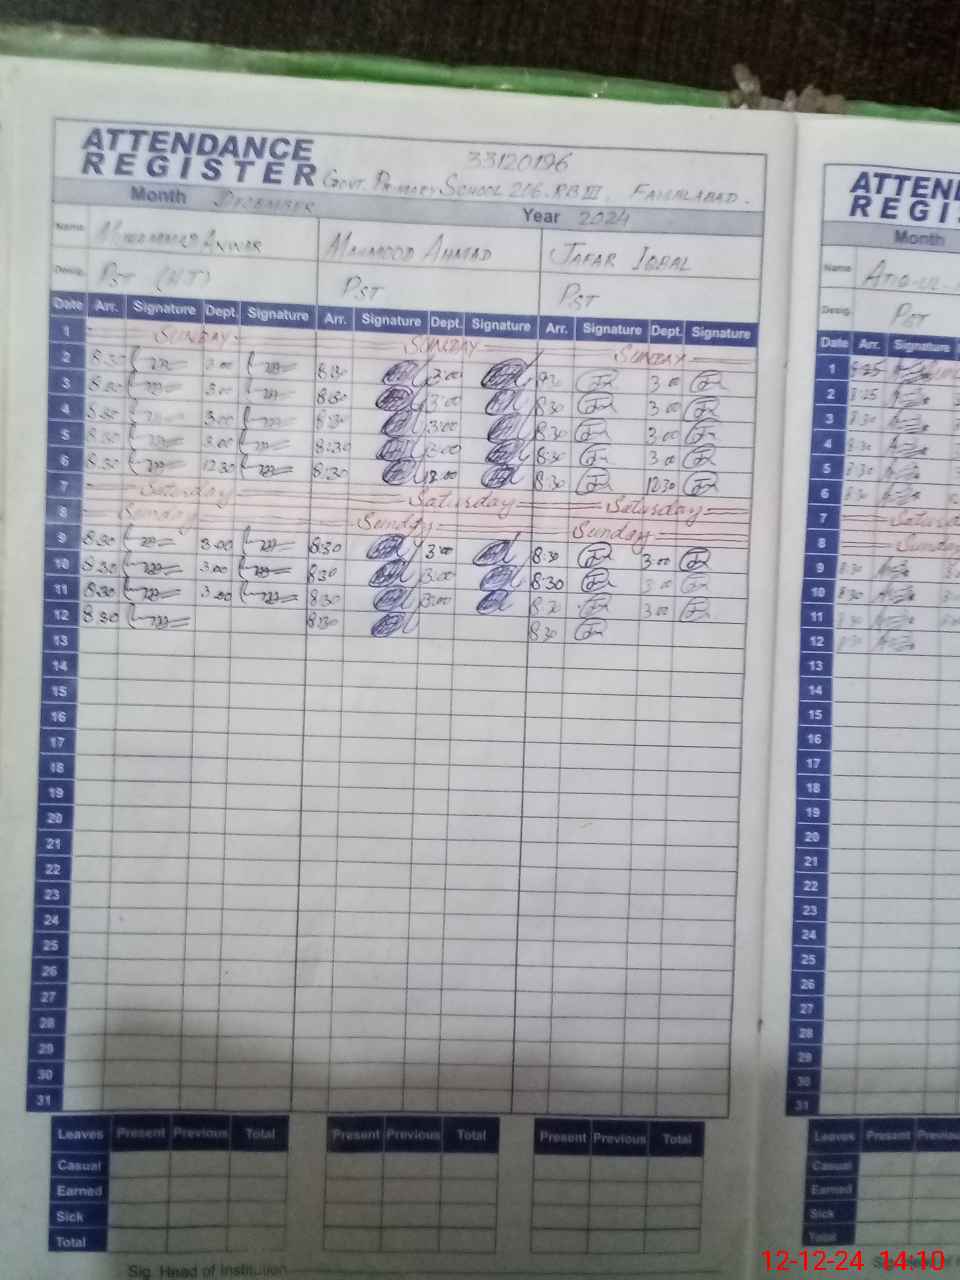 ATTENDANCE
REGISTER
33120196
Govt. Primary School 216.RB III, FAISALABAD.
Month DECEMBER Year 2024
Name MUHAMMAD ANWAR MAHMOOD AHMAD JAFAR IQBAL
Desig. PST (H.T) PST PST
Date Arr. Signature Dept. Signature Arr. Signature Dept. Signature Arr. Signature Dept. Signature
1 SUNDAY SUNDAY SUNDAY
2 8.30 3.00 8:30 3:00 3.00
3 8.30 3.00 8:30 3:00 8.30 3.00
4 8.30 3.00 8:30 3:00 8.30 3.00
5 8.30 3.00 8:30 3:00 8.30 3.00
6 8.30 12.30 8:30 12:00 8.30 12.30
7 Saturday Saturday Saturday
8 Sunday Sunday Sunday
9 8.30 3.00 8:30 3:00 8.30 3.00
10 8.30 3.00 8:30 3:00 8.30 3.00
11 8.30 3.00 8:30 3:00 8.30 3.00
12 8.30 8:30 8.30
13
14
15
16
17
18
19
20
21
22
23
24
25
26
27
28
29
30
31
Leaves Present Previous Total Present Previous Total Present Previous Total
Casual
Earned
Sick
Total
Sig. Head of Institution
ATTEN
REGI
Month
Name ATIQ-UL-
Desig. PST
Date Arr. Signature
1 8:25
2 8:25
3 8:30
4 8:30
5 8:30
6 8:30
7 Saturd
8 Sunday
9 8:30
10 8:30
11 8:30
12 8:30
13
14
15
16
17
18
19
20
21
22
23
24
25
26
27
28
29
30
31
Leaves Present Previou
Casual
Earned
Sick
Total
12-12-24 14:10